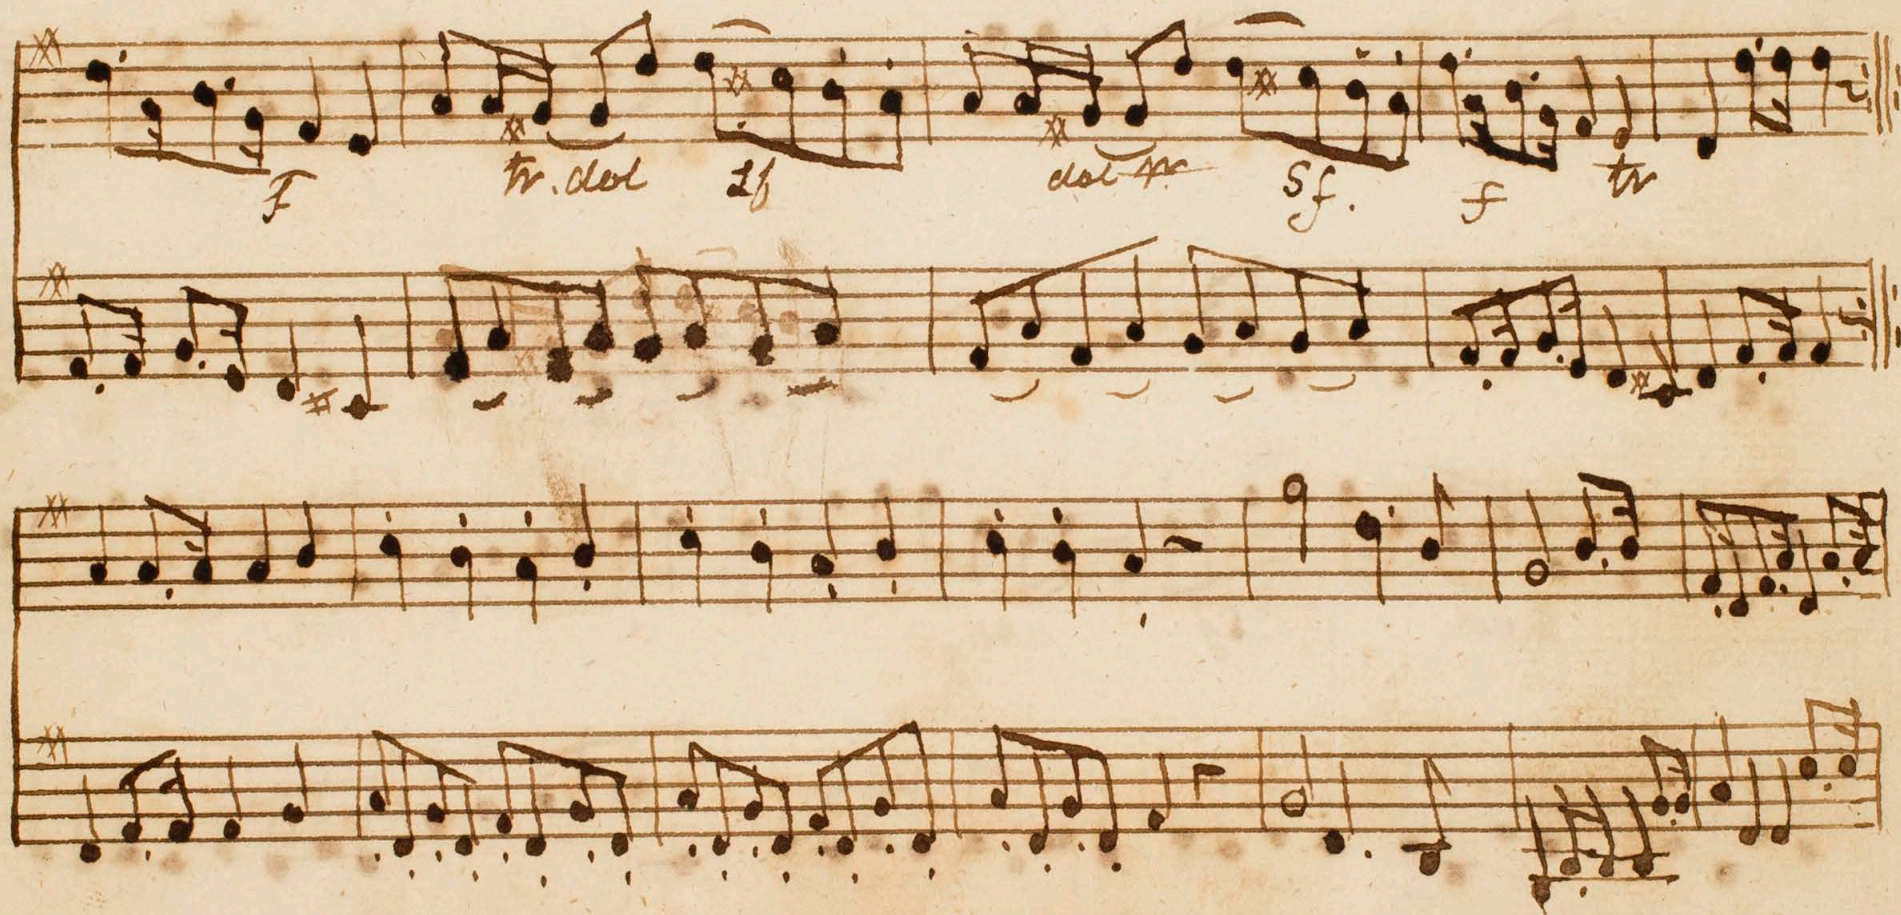 F tr. dol sf dol tr Sf. f tr